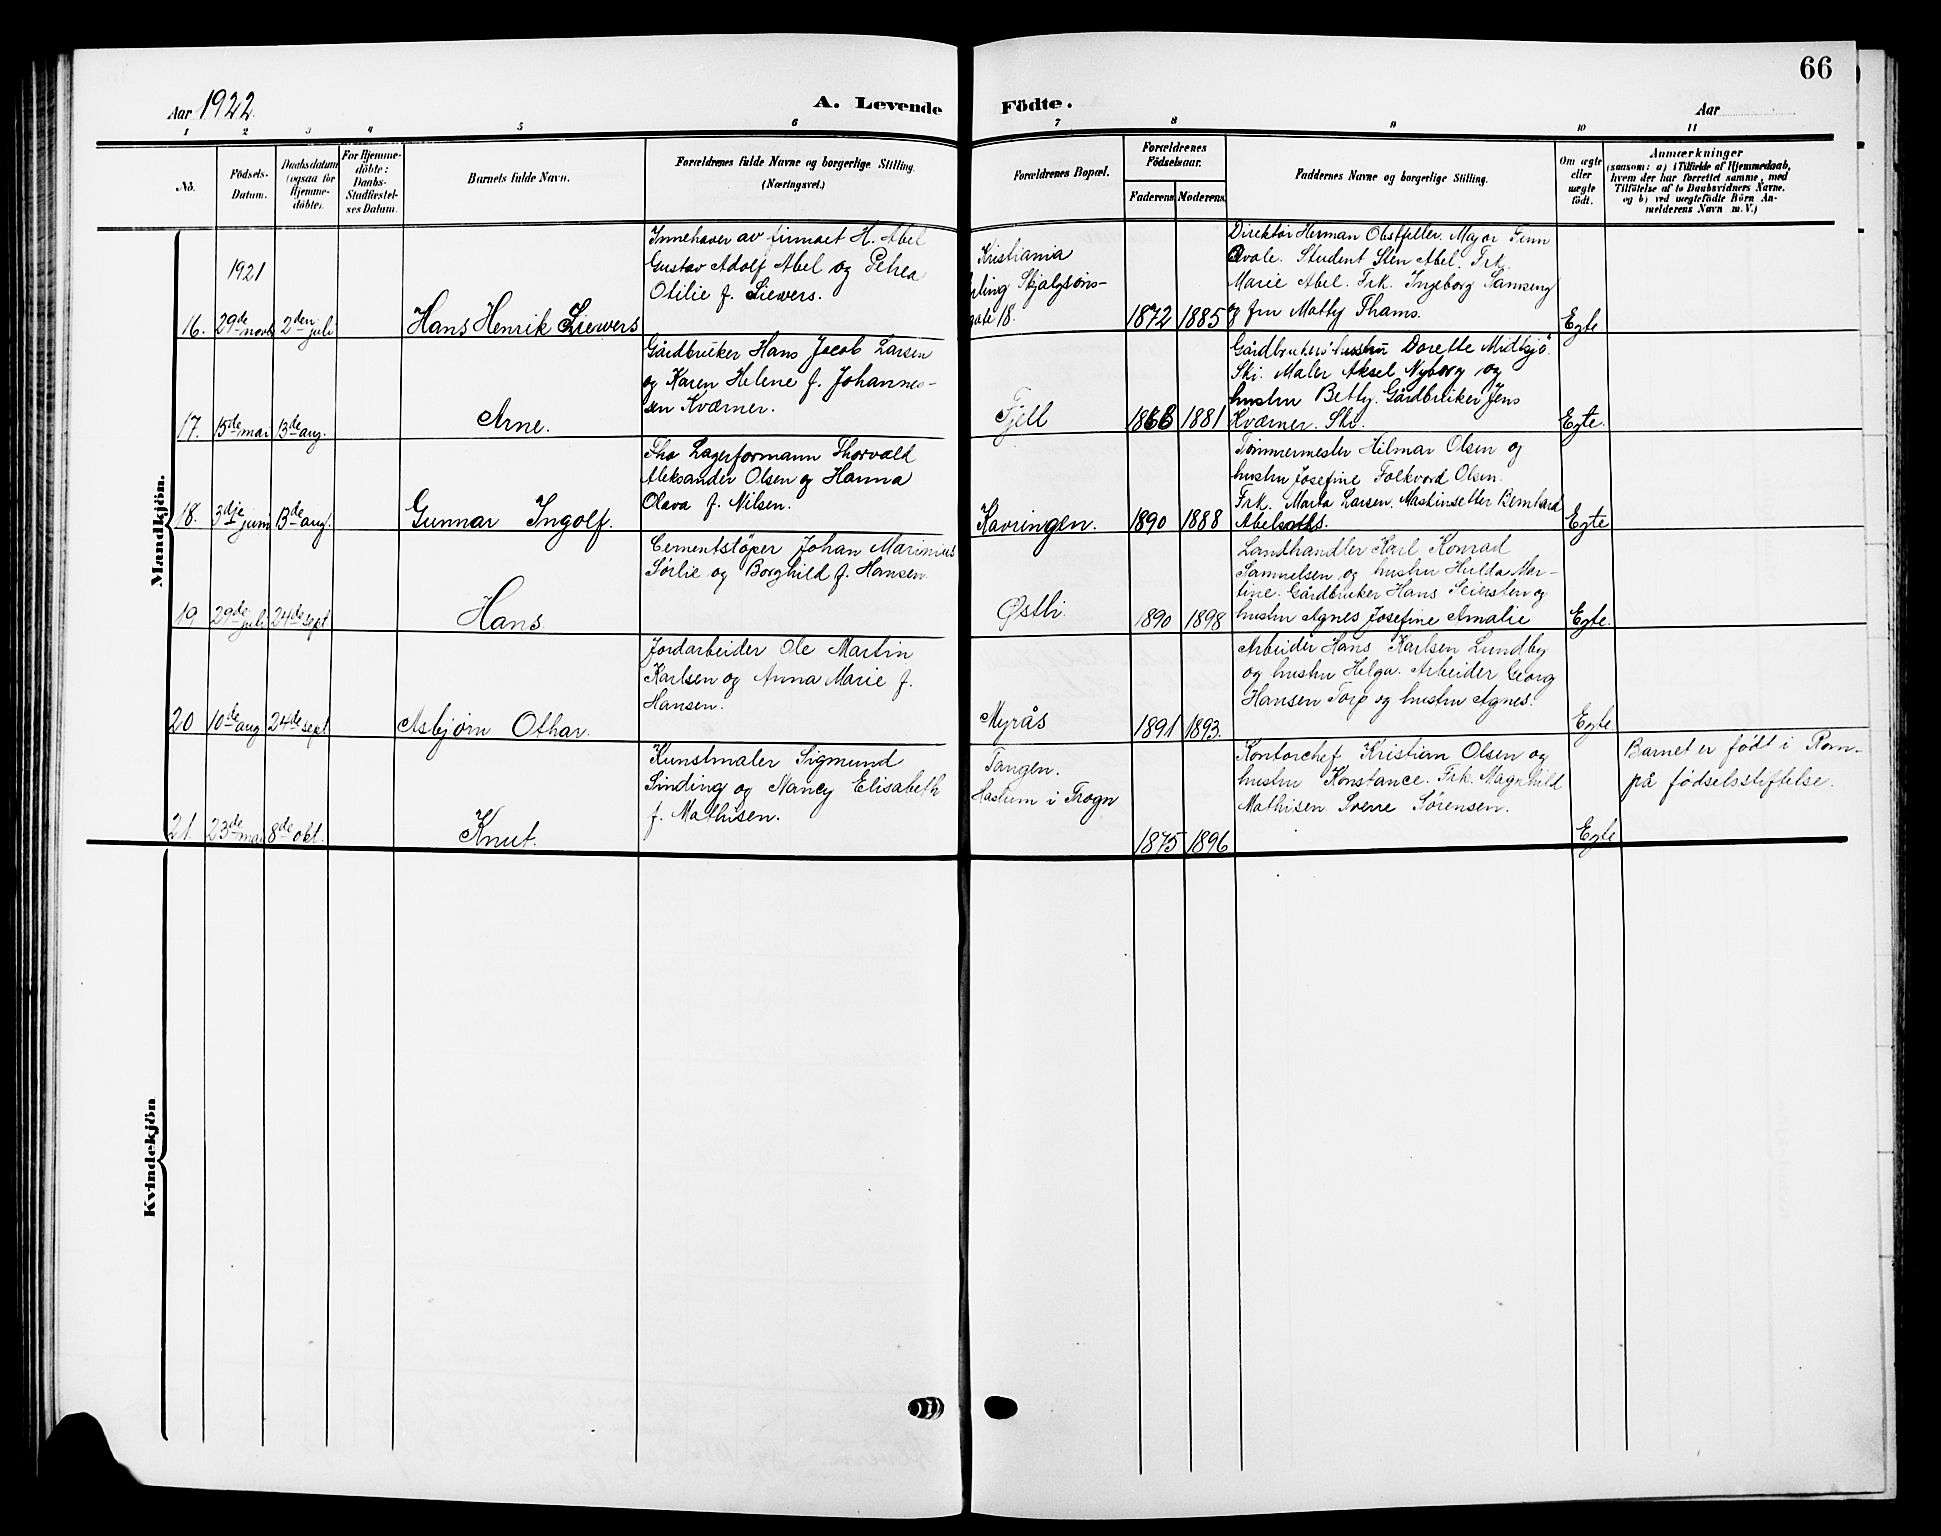 66
Aar 1922.
A. Levende Födte.
Aar
1 2 3 4 5 6 7 8 9 10 11
No.
Födsels-
Datum.
Daabsdatum
(ogsaa for
Hjemme-
döbte).
For Hjemme-
döbte:
Daabs-
Stadfæstel-
ses Datum.
Barnets fulde Navn.
Forældrenes fulde Navne og borgerlige Stilling.
(Næringsvei.)
Forældrenes Bopæl.
Forældrenes
Födselsaar.
Faderens Moderens.
Faddernes Navne og borgerlige Stilling.
Om ægte
eller
uægte
födt.
Anmærkninger
(saasom: a) i Tilfælde af Hjemmedaab,
hvem der har forrettet samme, med
Tilföielse af to Daabsvidners Navne.
og b) ved uægtefödte Börn An-
melderens Navn m. V.)
Mandkjön.
1921
16. 29de novb 2den juli
Hans Henrik Siewers
Innehaver av firmaet H. Abel
Gustav Adolf Abel og Petrea
Otilie f. Siewers.
Kristiania
Erling Skjalgsøns-
gate 18.
1872 1885
Direktør Herman Obstfelder. Major Finn
Qvale. Student Sten Abel. Frk.
Marie Abel. Frk. Ingeborg Samsing
og fru Matty Thams.
Egte
17. 15de mai 13de aug.
Arne.
Gårdbruker Hans Jacob Larsen
og Karen Helene f. Johannes-
sen Kværner.
Fjell
1866 1881
Gårdbrukers hustru Dorette Midtsjö
Ski. Maler Aksel Nyborg og
hustru Betty. Gårdbruker Jens
Kværner. Ski.
Egte.
18. 3dje juni 13de aug.
Gunnar Ingolf.
Lagerformann Thorvald
Aleksander Olsen og Hanna
Olava f. Nilsen.
Kavringen.
1890 1888
Tømmermester Hilmar Olsen og
hustru Josefine Folkvord Olsen.
Frk. Marta Larsen. Bernhard
Egte
19. 29de juli 24de sept
Hans
Cementstøper Johan Marinius
Sørlie og Borghild f. Hansen.
Østli
1890 1898
Landhandler Karl Konrad
Samuelsen og hustru Hulda Mar-
tine. Gårdbruker Hans Seiersten og
hustru Agnes Josefine Amalie
Egte.
20 10de aug. 24de sept
Asbjørn Othar.
Jordarbeider Ole Martin
Karlsen og Anna Marie f.
Hansen.
Myrås
1891 1893.
Arbeider Hans Karlsen Lundby
og hustru Helga. Arbeider Georg
Hansen Torp og hustru Agnes.
Egte
21. 23de mai 8de okt.
Knut.
Kunstmaler Sigmund
Sinding og Nancy Elisabeth
f. Mathisen.
Tangen.
Haslum i Frogn
1875 1896
Kontorchef Kristian Olsen og
hustru Konstance. Frk. Magnhild
Mathisen Sverre Sørensen.
Egte
Barnet er født i Rom-
på fødselsstiftelse.
Kvindekjön